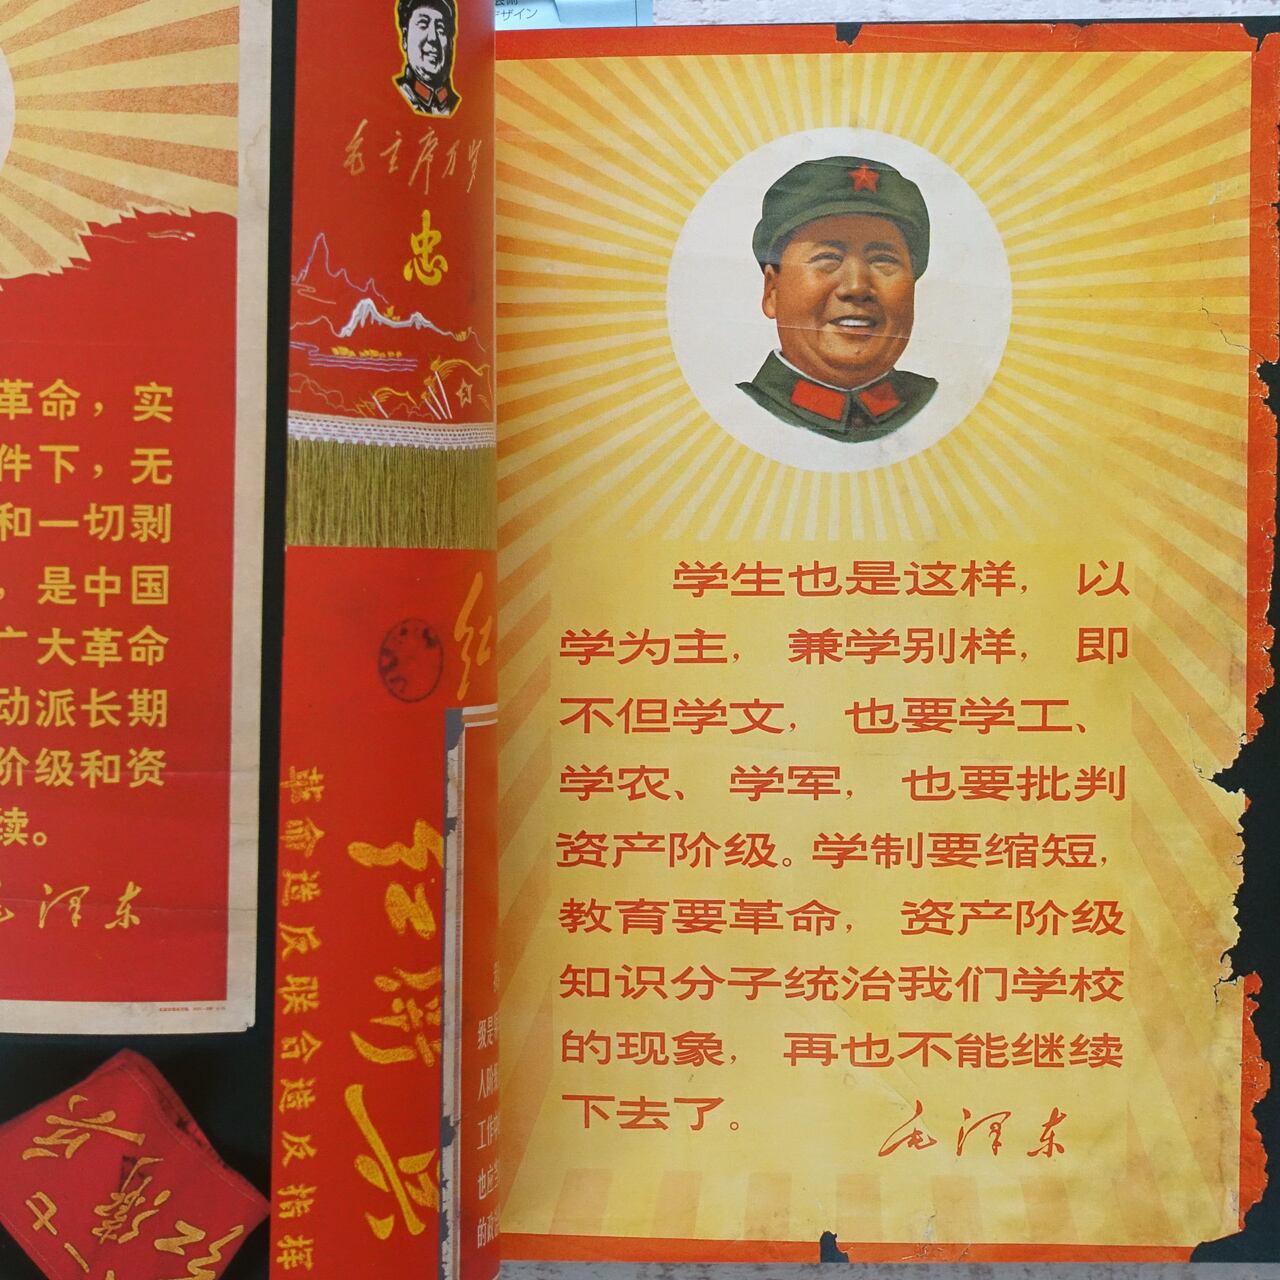 デザイン
革命，实
件下，无
和一切剥
，是中国
广大革命
动派长期
阶级和资
续。
毛泽东
毛主席万岁
忠
红
红卫兵
革命造反联合造反指挥
红卫兵
级是
人阶
工作
也应
的政
学生也是这样，以
学为主，兼学别样，即
不但学文，也要学工、
学农、学军，也要批判
资产阶级。学制要缩短，
教育要革命，资产阶级
知识分子统治我们学校
的现象，再也不能继续
下去了。
毛泽东